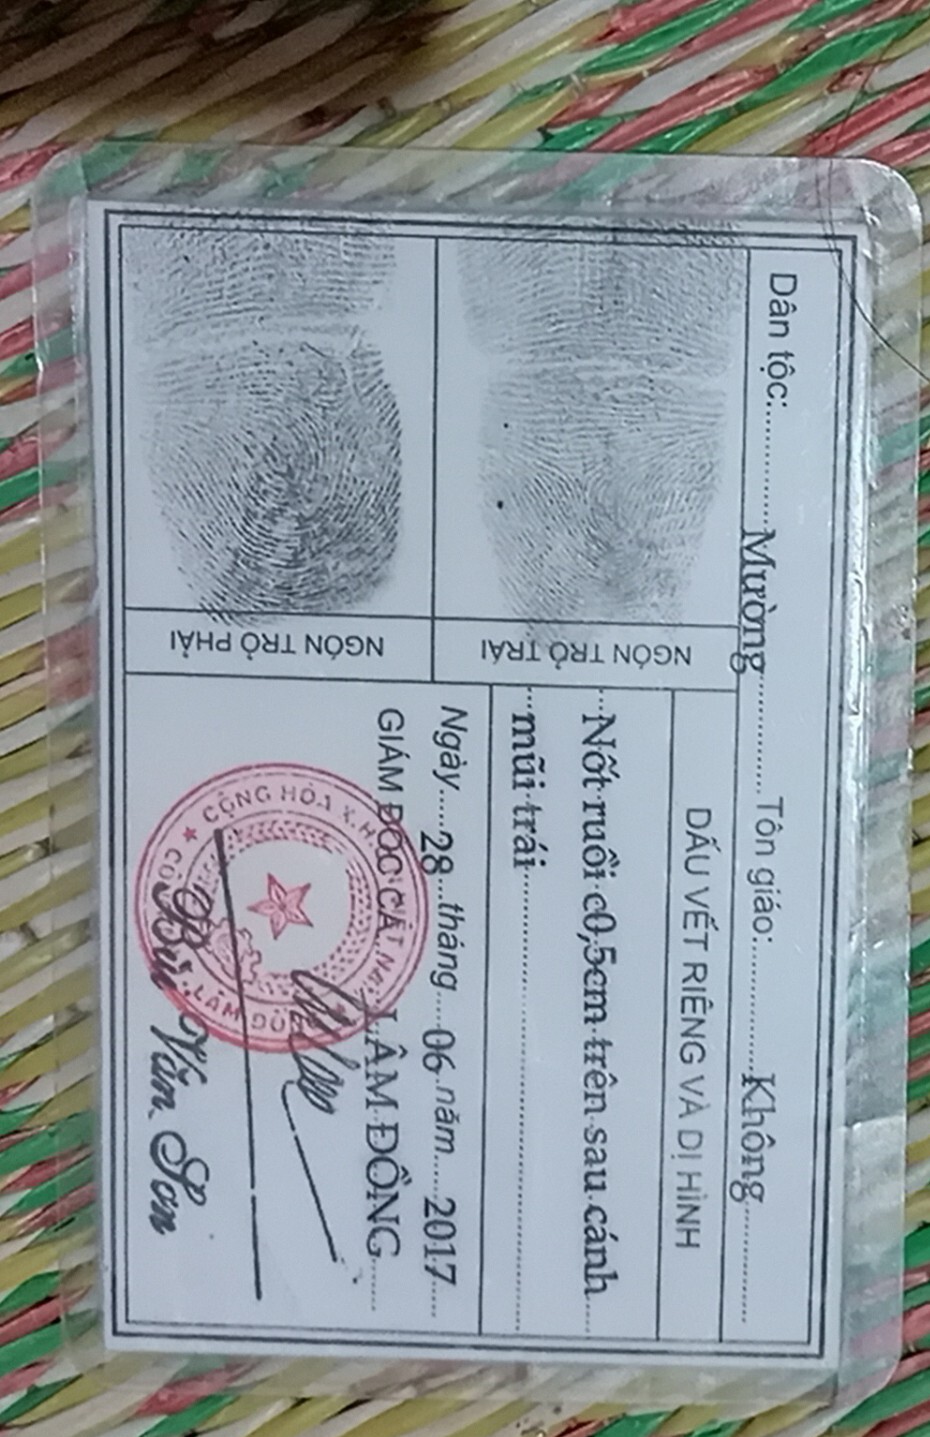 Dân tộc: Mường Tôn giáo: Không
NGÓN TRỎ TRÁI
NGÓN TRỎ PHẢI
DẤU VẾT RIÊNG VÀ DỊ HÌNH
Nốt ruồi c0,5cm trên sau cánh
mũi trái
Ngày 28 tháng 06 năm 2017
GIÁM ĐỐC CA T. LÂM ĐỒNG
CỘNG HÒA X.H
Văn Sơn